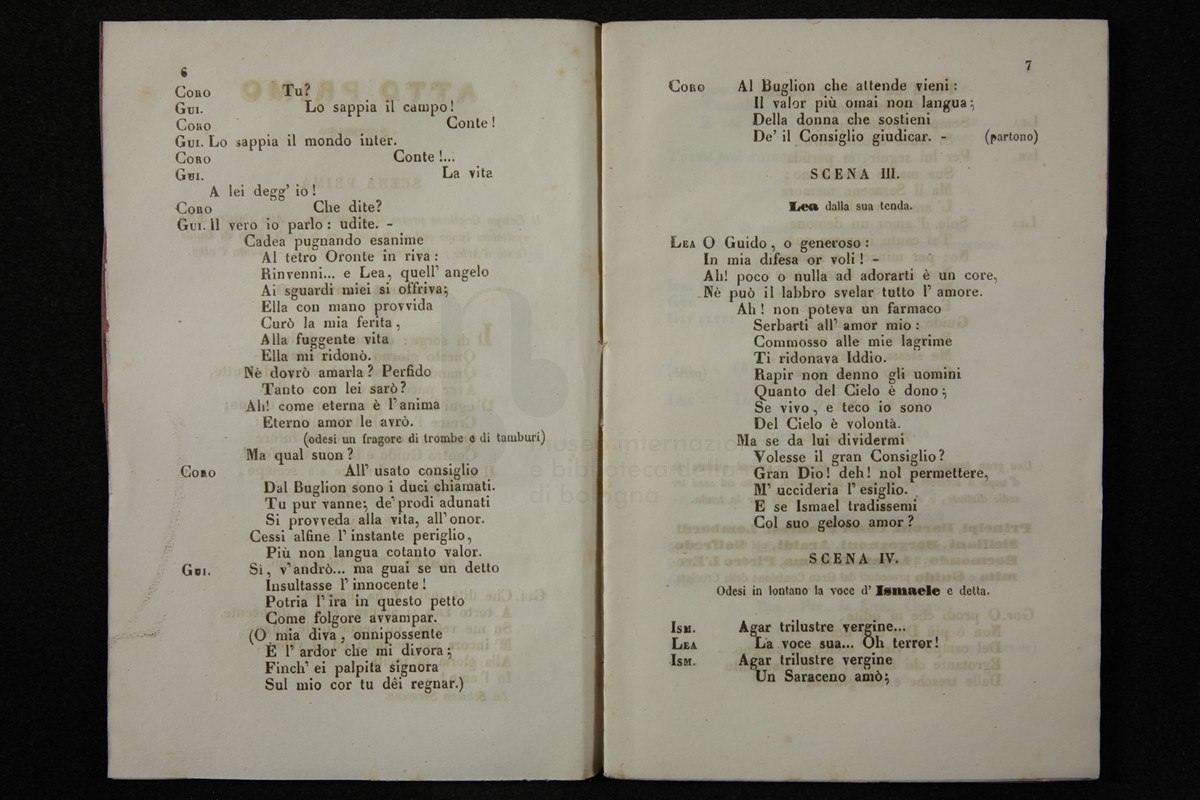 6
CORO Tu?
GUI. Lo sappia il campo!
CORO Conte!
GUI. Lo sappia il mondo inter.
CORO Conte!...
GUI. La vita
A lei degg' io!
CORO Che dite?
GUI. Il vero io parlo: udite. -
Cadea pugnando esanime
Al tetro Oronte in riva:
Rinvenni... e Lea, quell' angelo
Ai sguardi miei si offriva;
Ella con mano provvida
Curò la mia ferita,
Alla fuggente vita
Ella mi ridonò.
Nè dovrò amarla? Perfido
Tanto con lei sarò?
Ah! come eterna è l'anima
Eterno amor le avrò.
(odesi un fragore di trombe e di tamburi)
Ma qual suon?
CORO All' usato consiglio
Dal Buglion sono i duci chiamati.
Tu pur vanne; de' prodi adunati
Si provveda alla vita, all' onor.
Cessi alfine l' instante periglio,
Più non langua cotanto valor.
GUI. Sì, v'andrò... ma guai se un detto
Insultasse l' innocente!
Potria l'ira in questo petto
Come folgore avvampar.
(O mia diva, onnipossente
È l' ardor che mi divora;
Finch' ei palpita signora
Sul mio cor tu dêi regnar.)
7
CORO Al Buglion che attende vieni:
Il valor più omai non langua;
Della donna che sostieni
De' il Consiglio giudicar. - (partono)
SCENA III.
Lea dalla sua tenda.
LEA O Guido, o generoso:
In mia difesa or voli! -
Ah! poco o nulla ad adorarti è un core,
Nè può il labbro svelar tutto l' amore.
Ah! non poteva un farmaco
Serbarti all' amor mio:
Commosso alle mie lagrime
Ti ridonava Iddio.
Rapir non denno gli uomini
Quanto del Cielo è dono;
Se vivo, e teco io sono
Del Cielo è volontà.
Ma se da lui dividermi
Volesse il gran Consiglio?
Gran Dio! deh! nol permettere,
M' uccideria l' esiglio.
E se Ismael tradissemi
Col suo geloso amor?
SCENA IV.
Odesi in lontano la voce d' Ismaele e detta.
ISM. Agar trilustre vergine...
LEA La voce sua... Oh terror!
ISM. Agar trilustre vergine
Un Saraceno amò;
museo internazio
e biblioteca della
di bologna